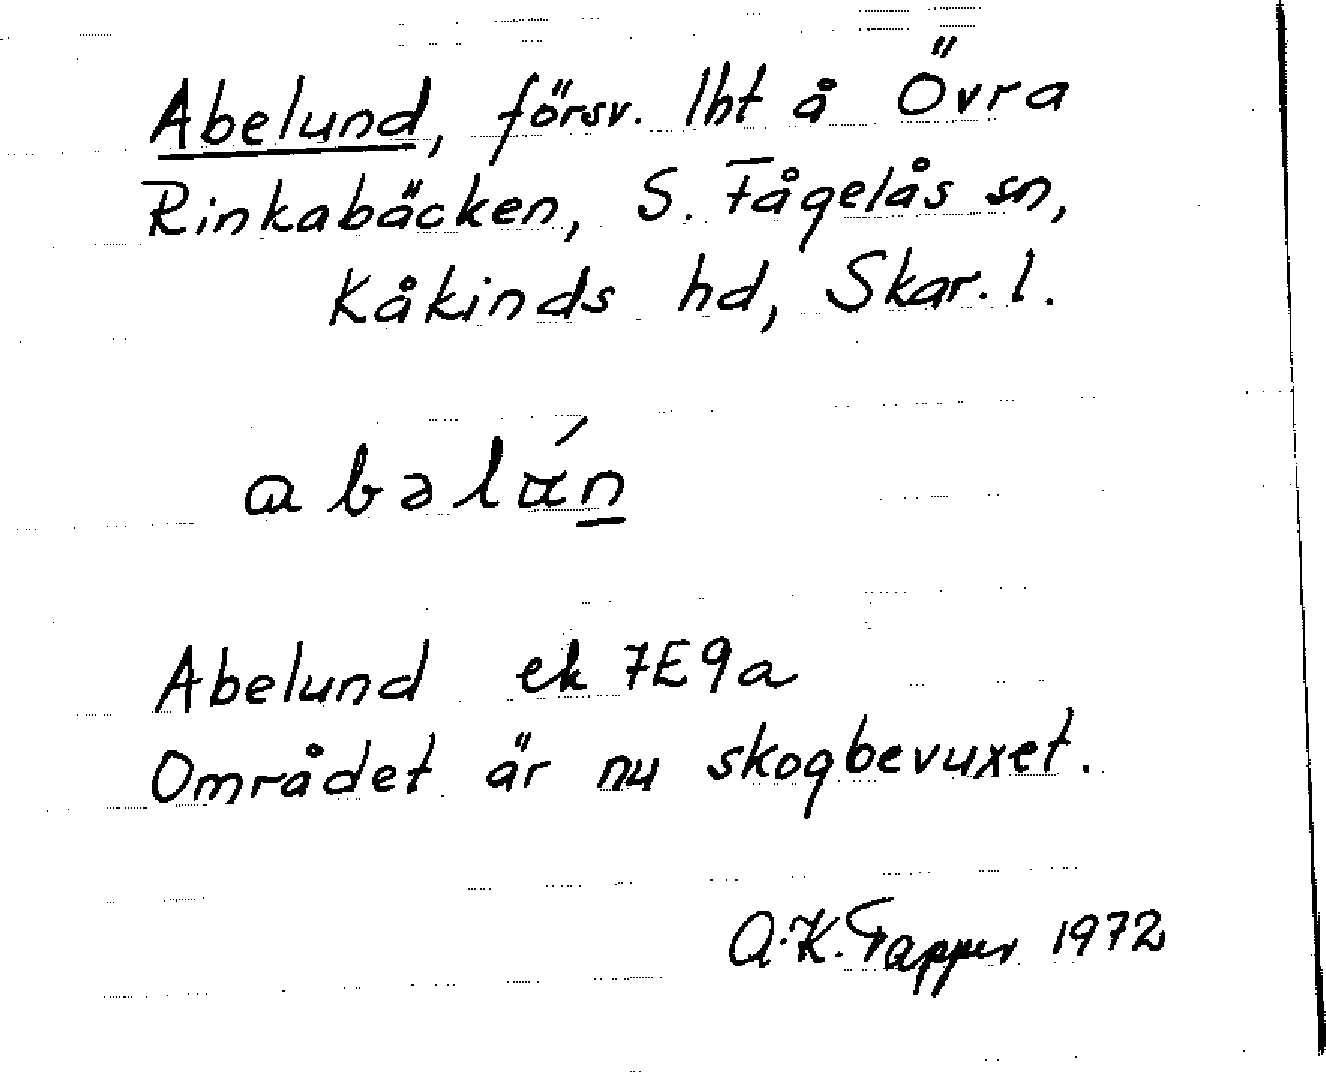 Abelund, försv. lht å Övra
Rinkabäcken, S. Fågelås sn,
Kåkinds hd, Skar. l.
abəlán
Abelund ek 7E9a
Området är nu skogbevuxet.
A.K. Tapper 1972